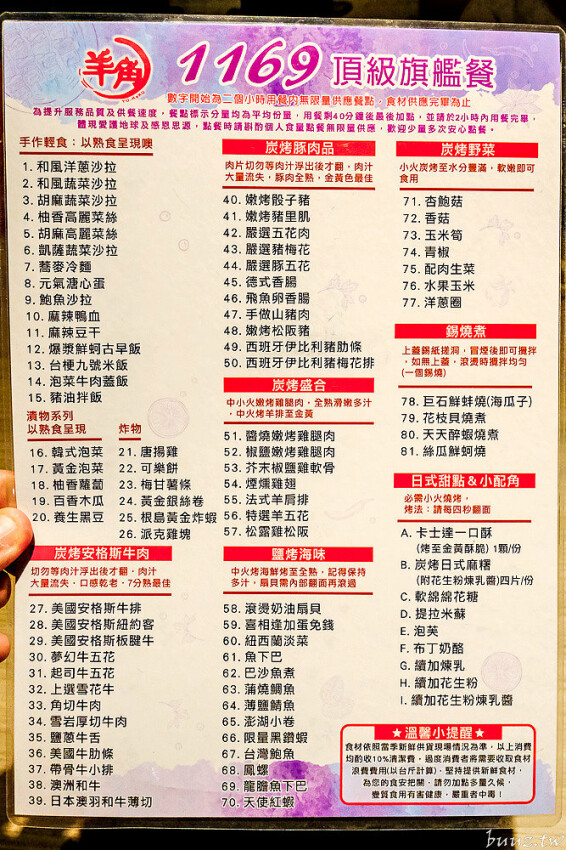 羊角
YO KAKU
1169 頂級旗艦餐
數字開始為二個小時用餐內無限量供應餐點，食材供應完畢為止
為提升服務品質及供餐速度，餐點標示分量均為平均份量，用餐剩40分鐘後最後加點，並請於2小時內用餐完畢，
體現愛護地球及感恩思源，點餐時請斟酌個人食量點餐無限量供應，歡迎少量多次安心點餐。
手作輕食：以熟食呈現噢
1. 和風洋蔥沙拉
2. 和風蔬菜沙拉
3. 胡麻蔬菜沙拉
4. 柚香高麗菜絲
5. 胡麻高麗菜絲
6. 凱薩蔬菜沙拉
7. 蕎麥冷麵
8. 元氣溏心蛋
9. 鮑魚沙拉
10. 麻辣鴨血
11. 麻辣豆干
12. 爆漿鮮蚵古早飯
13. 台梗九號米飯
14. 泡菜牛肉蓋飯
15. 豬油拌飯
漬物系列
以熟食呈現
16. 韓式泡菜
17. 黃金泡菜
18. 柚香蘿蔔
19. 百香木瓜
20. 養生黑豆
炸物
21. 唐揚雞
22. 可樂餅
23. 梅甘薯條
24. 黃金銀絲卷
25. 根島黃金炸蝦
26. 派克雞塊
炭烤安格斯牛肉
切勿等肉汁浮出後才翻，肉汁
大量流失，口感乾老，7分熟最佳
27. 美國安格斯牛排
28. 美國安格斯紐約客
29. 美國安格斯板腱牛
30. 夢幻牛五花
31. 起司牛五花
32. 上選雪花牛
33. 角切牛肉
34. 雪岩厚切牛肉
35. 鹽蔥牛舌
36. 美國牛肋條
37. 帶骨牛小排
38. 澳洲和牛
39. 日本澳羽和牛薄切
炭烤豚肉品
肉片切勿等肉汁浮出後才翻，肉汁
大量流失，豚肉全熟，金黃色最佳
40. 嫩烤骰子豬
41. 嫩烤豬里肌
42. 嚴選五花肉
43. 嚴選豬梅花
44. 嚴選豚五花
45. 德式香腸
46. 飛魚卵香腸
47. 手做山豬肉
48. 嫩烤松阪豬
49. 西班牙伊比利豬肋條
50. 西班牙伊比利豬梅花排
炭烤盛合
中小火嫩烤雞腿肉，全熟滑嫩多汁
，中火烤羊排至金黃
51. 醬燒嫩烤雞腿肉
52. 椒鹽嫩烤雞腿肉
53. 芥末椒鹽雞軟骨
54. 煙燻雞翅
55. 法式羊肩排
56. 特選羊五花
57. 松露雞松阪
鹽烤海味
中火烤海鮮烤至全熟，記得保持
多汁，扇貝需內部翻面再滾過
58. 滾燙奶油扇貝
59. 喜相逢加蛋免錢
60. 紐西蘭淡菜
61. 魚下巴
62. 巴沙魚煮
63. 蒲燒鯛魚
64. 薄鹽鯖魚
65. 澎湖小卷
66. 限量黑鑽蝦
67. 台灣鮑魚
68. 鳳螺
69. 龍膽魚下巴
70. 天使紅蝦
炭烤野菜
小火炭烤至水分豐滿，軟嫩即可
食用
71. 杏鮑菇
72. 香菇
73. 玉米筍
74. 青椒
75. 配肉生菜
76. 水果玉米
77. 洋蔥圈
錫燒煮
上蓋錫紙搓洞，冒煙後即可攪拌
，如無上蓋，滾燙時攪拌均勻
(一個錫燒)
78. 巨石鮮蚌燒(海瓜子)
79. 花枝貝燒煮
80. 天天醉蝦燒煮
81. 絲瓜鮮蚵燒
日式甜點＆小配角
必需小火燒烤，
烤法：請每四秒翻面
A. 卡士達一口酥
(烤至金黃酥脆) 1顆/份
B. 炭烤日式麻糬
(附花生粉煉乳醬)四片/份
C. 軟綿綿花糖
D. 提拉米蘇
E. 泡芙
F. 布丁奶酪
G. 續加煉乳
H. 續加花生粉
I. 續加花生粉煉乳醬
★溫馨小提醒★
食材依照當季新鮮供貨現場情況為準，以上消費
均酌收10%清潔費，過度消費者將需要收取食材
浪費費用(以台斤計算)，堅持提供新鮮食材，
為您的食安把關，請勿加點多量久候，
變質食用有害健康，嚴重者中毒！
buuz.tw